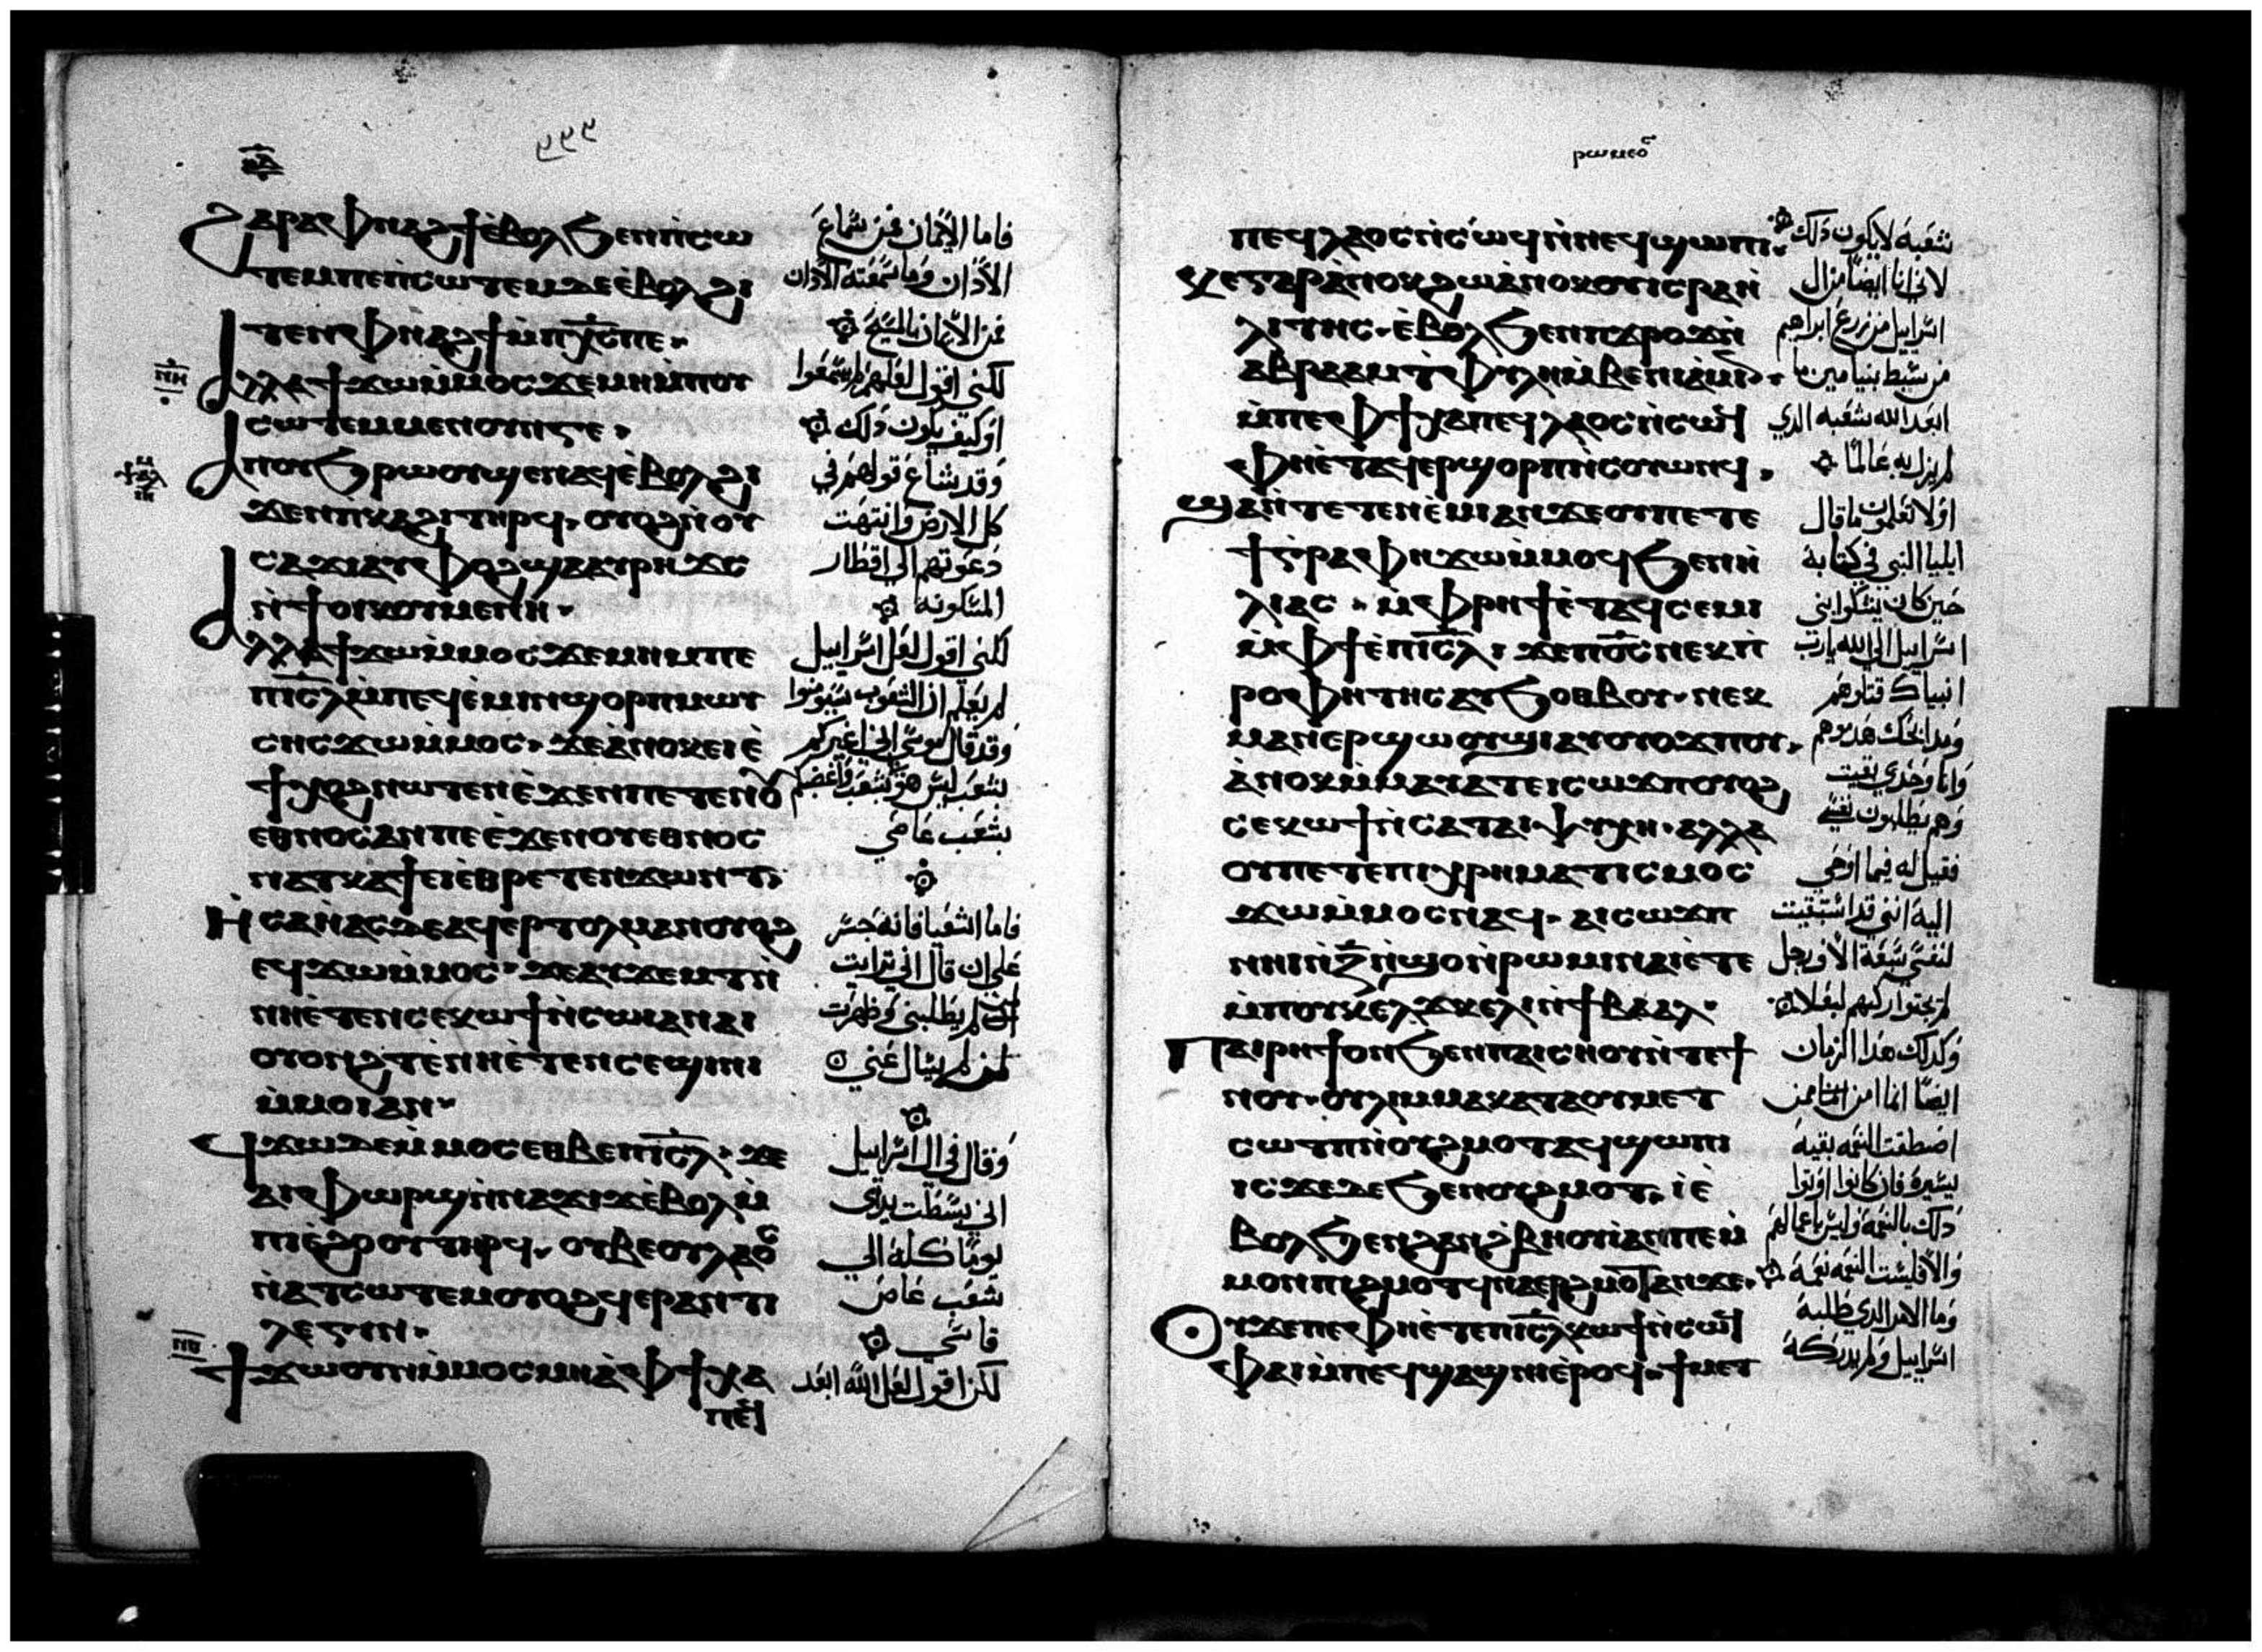 ϩⲁⲣⲁ ⲫⲛⲁϩϯ ⲉ̀ⲃⲟⲗ ϧⲉⲛ ⲡ̀ⲥⲱ
ⲧⲉⲙ ⲡⲉ ⲡ̀ⲥⲱⲧⲉⲙ ⲇⲉ ⲉ̀ⲃⲟⲗ ϩⲓ
ⲧⲉⲛ ⲫⲛⲁϩϯ ⲙ̀ⲡⲭ̅ⲥ̅ ⲡⲉ
ⲁⲗⲗⲁ ϯϫⲱ ⲙ̀ⲙⲟⲥ ϫⲉ ⲙⲏ ⲙ̀ⲡⲟⲩ
ⲥⲱⲧⲉⲙ ⲙⲉⲛⲟⲩⲛⲅⲉ
ⲁⲡⲟⲩϧⲣⲱⲟⲩ ϣⲉⲛⲁϥ ⲉ̀ⲃⲟⲗ ϩⲓ
ϫⲉⲛ ⲡ̀ⲕⲁϩⲓ ⲧⲏⲣϥ ⲟⲩⲟϩ ⲛⲟⲩ
ⲥⲁϫⲓ ⲁⲩⲫⲟϩ ϣⲁ ⲁⲩⲣⲏϫⲥ
ⲛ̀ϯⲟⲓⲕⲟⲩⲙⲉⲛⲏ
ⲁⲗⲗⲁ ϯϫⲱ ⲙ̀ⲙⲟⲥ ϫⲉ ⲙⲏ ⲙⲡⲉ
ⲡⲓⲥ̅ⲗ̅ ⲙ̀ⲡⲉϥⲉ̀ⲙⲓ ⲛϣⲟⲣⲡ ⲙⲱⲩ
ⲥⲏⲥ ϫⲱ ⲙ̀ⲙⲟⲥ ϫⲉ ⲁ̀ⲛⲟⲕ ⲉⲓⲉ̀
ϯⲭⲟϩ ⲛⲱⲧⲉⲛ ⲉ̀ϫⲉⲛ ⲡⲉⲧⲉⲛⲟ
ⲉⲑⲛⲟⲥ ⲁⲛ ⲡⲉ ⲉ̀ϫⲉⲛ ⲟⲩⲉⲑⲛⲟⲥ
ⲛⲁⲧⲕⲁϯ ⲉⲓⲉ̀ⲑⲣⲉⲧⲉⲛϫⲱⲛⲧ
ⲏⲥⲁⲏ̀ⲁⲥ ⲇⲉ ⲁϥⲉⲣⲧⲟⲗⲙⲁⲛ ⲟⲩⲟϩ
ⲉϥϫⲱ ⲙ̀ⲙⲟⲥ ϫⲉ ⲁⲩϫⲉⲙⲧ ⲛ̀
ⲛⲏⲉ̀ⲧⲉⲛⲥⲉⲕⲱϯ ⲛ̀ⲥⲱⲓ ⲁⲛ ⲁⲓ
ⲟⲩⲟⲛϩⲧ ⲉ̀ⲛⲏⲉ̀ⲧⲉⲛⲥⲉϣⲓⲛⲓ
ⲙ̀ⲙⲟⲓ ⲁⲛ
ϥϫⲱ ⲇⲉ ⲙ̀ⲙⲟⲥ ⲉⲑⲃⲉ ⲡⲓⲥ̅ⲗ̅ ϫⲉ
ⲁⲓⲫⲱⲣϣ ⲛ̀ⲛⲁϫⲓϫ ⲉ̀ⲃⲟⲗ ⲙ̀
ⲡⲓⲉ̀ϩⲟⲟⲩ ⲧⲏⲣϥ ⲟⲩⲃⲉ ⲟⲩⲗⲁⲟ
ⲛ̀ⲁⲧⲥⲱⲧⲉⲙ ⲟⲩⲟϩ ϥⲉⲣⲁⲛⲧⲓ
ⲗⲉⲅⲓⲛ
ϯϫⲱ ⲟⲩⲛ ⲙ̀ⲙⲟⲥ ⲙⲏ ⲁ̀ ⲫϯ ⲭⲁ
ⲡⲉϥ
فاما الايمان فمن سماع
الاذان وما سمعته الاذان
فمن الايمان بالمسيح
لكني اقول لعلهم لم يسمعوا
او كيف يكون ذلك
وقد شاع قولهم في
كل الارض وانتهت
دعوتهم الى اقطار
المسكونة
لكني اقول لعل اسراييل
لم يعلم ان الشعوب سيومنوا
وقد قال موسى اني اغيركم
بشعب ليس هو بشعب واغضبكم
بشعب عاصي
فاما اشعيا فانه جسر
على ان قال اني ترايت
لمن لم يطلبني وظهرت
لمن لم يسال عني
وقال في ال اسراييل
اني بسطت يداي
يوما كله الى
شعب عاص
قاسي
لكن اقول لعل الله ابعد
ⲣⲱⲙⲉⲟ
ⲡⲉϥⲗⲁⲟⲥ ⲛ̀ⲥⲱϥ ⲛ̀ⲛⲉϥϣⲱⲡⲓ
ⲕⲉ ⲅⲁⲣ ⲁ̀ⲛⲟⲕ ϩⲱ ⲁ̀ⲛⲟⲕ ⲟⲩⲓⲥⲣⲁⲏ
ⲗⲓⲧⲏⲥ ⲉ̀ⲃⲟⲗ ϧⲉⲛ ⲡ̀ϫⲣⲟϫ ⲛ̀
ⲁⲃⲣⲁⲁⲙ ⲧⲫⲩⲗⲏ ⲙ̀ⲃⲉⲛⲓⲁⲙⲓⲛ
ⲙ̀ⲡⲉ ⲫϯ ⲭⲁ ⲡⲉϥⲗⲁⲟⲥ ⲛ̀ⲥⲱϥ
ⲫⲏⲉ̀ⲧⲁϥⲉⲣϣⲟⲣⲡ ⲛ̀ⲥⲟⲩⲱⲛϥ
ϣⲁⲛ ⲧⲉⲧⲉⲛⲉ̀ⲙⲓ ⲁⲛ ϫⲉ ⲟⲩ ⲡⲉⲧⲉ
ϯⲅⲣⲁⲫⲏ ϫⲱ ⲙ̀ⲙⲟϥ ϧⲉⲛ ⲏ̀
ⲗⲓⲁⲥ ⲙ̀ⲫⲣⲏϯ ⲉ̀ⲧⲁϥⲥⲉⲙⲓ
ⲙ̀ⲫϯ ⲉ̀ⲡⲓⲥ̅ⲗ̅ ϫⲉ ⲡⲟ̅ⲥ̅ ⲛⲉⲕⲡ
ⲣⲟⲫⲏⲧⲏⲥ ⲁⲩϧⲟⲑⲃⲟⲩ ⲛⲉⲕ
ⲙⲁⲛⲉⲣϣⲱⲟⲩϣⲓ ⲁⲩⲟⲩⲟϫⲡⲟⲩ
ⲁ̀ⲛⲟⲕ ⲙ̀ⲙⲁⲩⲁⲧ ⲉⲓⲥⲱϫⲡ ⲟⲩⲟϩ
ⲥⲉⲕⲱϯ ⲛ̀ⲥⲁ ⲧⲁⲓⲯⲩⲭⲏ ⲁⲗⲗⲁ
ⲟⲩ ⲡⲉⲧⲉ ⲡⲓⲭⲣⲏⲙⲁⲧⲓⲥⲙⲟⲥ
ϫⲱ ⲙ̀ⲙⲟⲥ ⲛⲁϥ ⲁⲓⲥⲱϫⲡ
ⲛⲏⲓ ⲛ̀ⲍ̅ ⲛ̀ϣⲟ ⲛ̀ⲣⲱⲙⲓ ⲛⲁⲓⲉ̀ⲧⲉ
ⲙ̀ⲡⲟⲩⲕⲉⲗϫ ⲕⲉⲗⲓ ⲛ̀ϯⲃⲁⲁⲗ
ⲡⲁⲓⲣⲏϯ ⲟⲛ ϧⲉⲛ ⲡⲁⲓⲥⲏⲟⲩ ⲛ̀ⲧⲉ ϯ
ⲛⲟⲩ ⲟⲩⲗⲩⲙⲙⲁ ⲕⲁⲧⲁ ⲟⲩⲙⲉⲧ
ⲥⲱⲧⲡ ⲛ̀ⲟⲩϩⲙⲟⲧ ⲁϥϣⲱⲡⲓ
ⲓⲥϫⲉ ⲇⲉ ϧⲉⲛ ⲟⲩϩⲙⲟⲧ ⲓⲉ̀
ⲃⲟⲗ ϧⲉⲛ ϩⲁⲛϩ̀ⲃⲏⲟⲩⲓ ⲁⲛ ⲡⲉ ⲙ̀
ⲙⲟⲛ ⲡⲓϩⲙⲟⲧ ϥⲛⲁⲉⲣϩⲙⲟⲧ ⲁⲛ ϫⲉ
ⲟⲩ ϫⲉ ⲡⲉ ⲫⲏⲉ̀ⲧⲉ ⲡⲓⲥ̅ⲗ̅ ⲕⲱϯ ⲛ̀ⲥⲱϥ
ⲫⲁⲓ ⲙ̀ⲡⲉϥϣⲁϣⲛⲓ ⲉ̀ⲣⲟϥ ϯⲙⲉⲧ
شعبه لا يكون ذلك
لاني انا ايضا من ال
اسراييل من زرع ابراهيم
من سبط بنيامين ما
ابعد الله شعبه الذي
لم يزل به عالما
اولا تعلمون ما قال
ايليا النبي في كتابة
حين كان يشكوا بني
اسراييل الى الله يارب
انبياك قتلوهم
ومذابحك هدموهم
وانا وحدي بقيت
وهم يطلبون نفسي
فقيل له فيما اوحي
اليه انني قد استبقيت
لنفسي سبعة الاف رجل
لم يجثوا ركبهم لبعلا
وكذلك هذا الزمان
ايضا انما امن
اصطفت النعمة بقية
يسيرة فان كانوا اوتوا
ذلك بالنعمة وليس باعمالهم
والا فليست النعمة نعمة
وما الامر الذي طلبه
اسراييل ولم يدركه